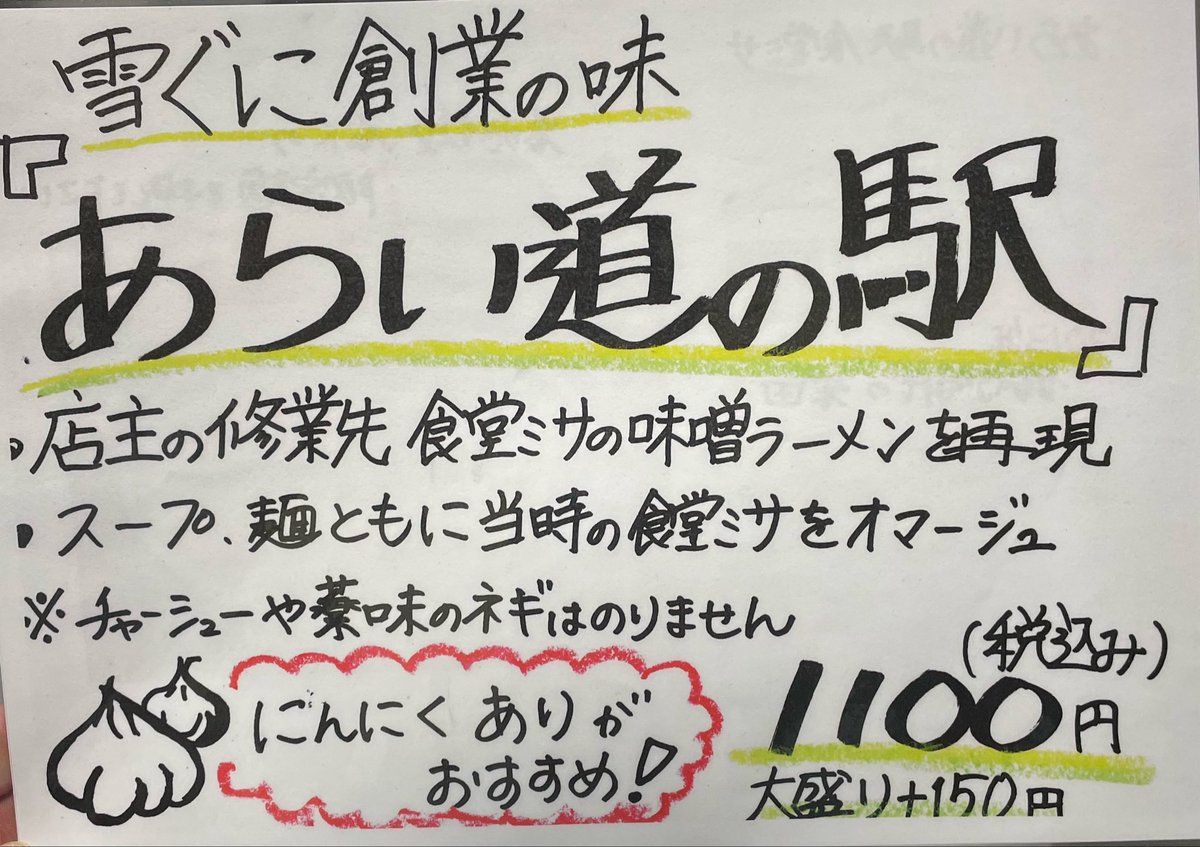 雪ぐに創業の味
『あらい道の駅』
・店主の修業先 食堂ミサの味噌ラーメンを再現
・スープ、麺ともに当時の食堂ミサをオマージュ
※チャーシューや薬味のネギはのりません
(税込み)
にんにくありが
おすすめ!
1100円
大盛り+150円